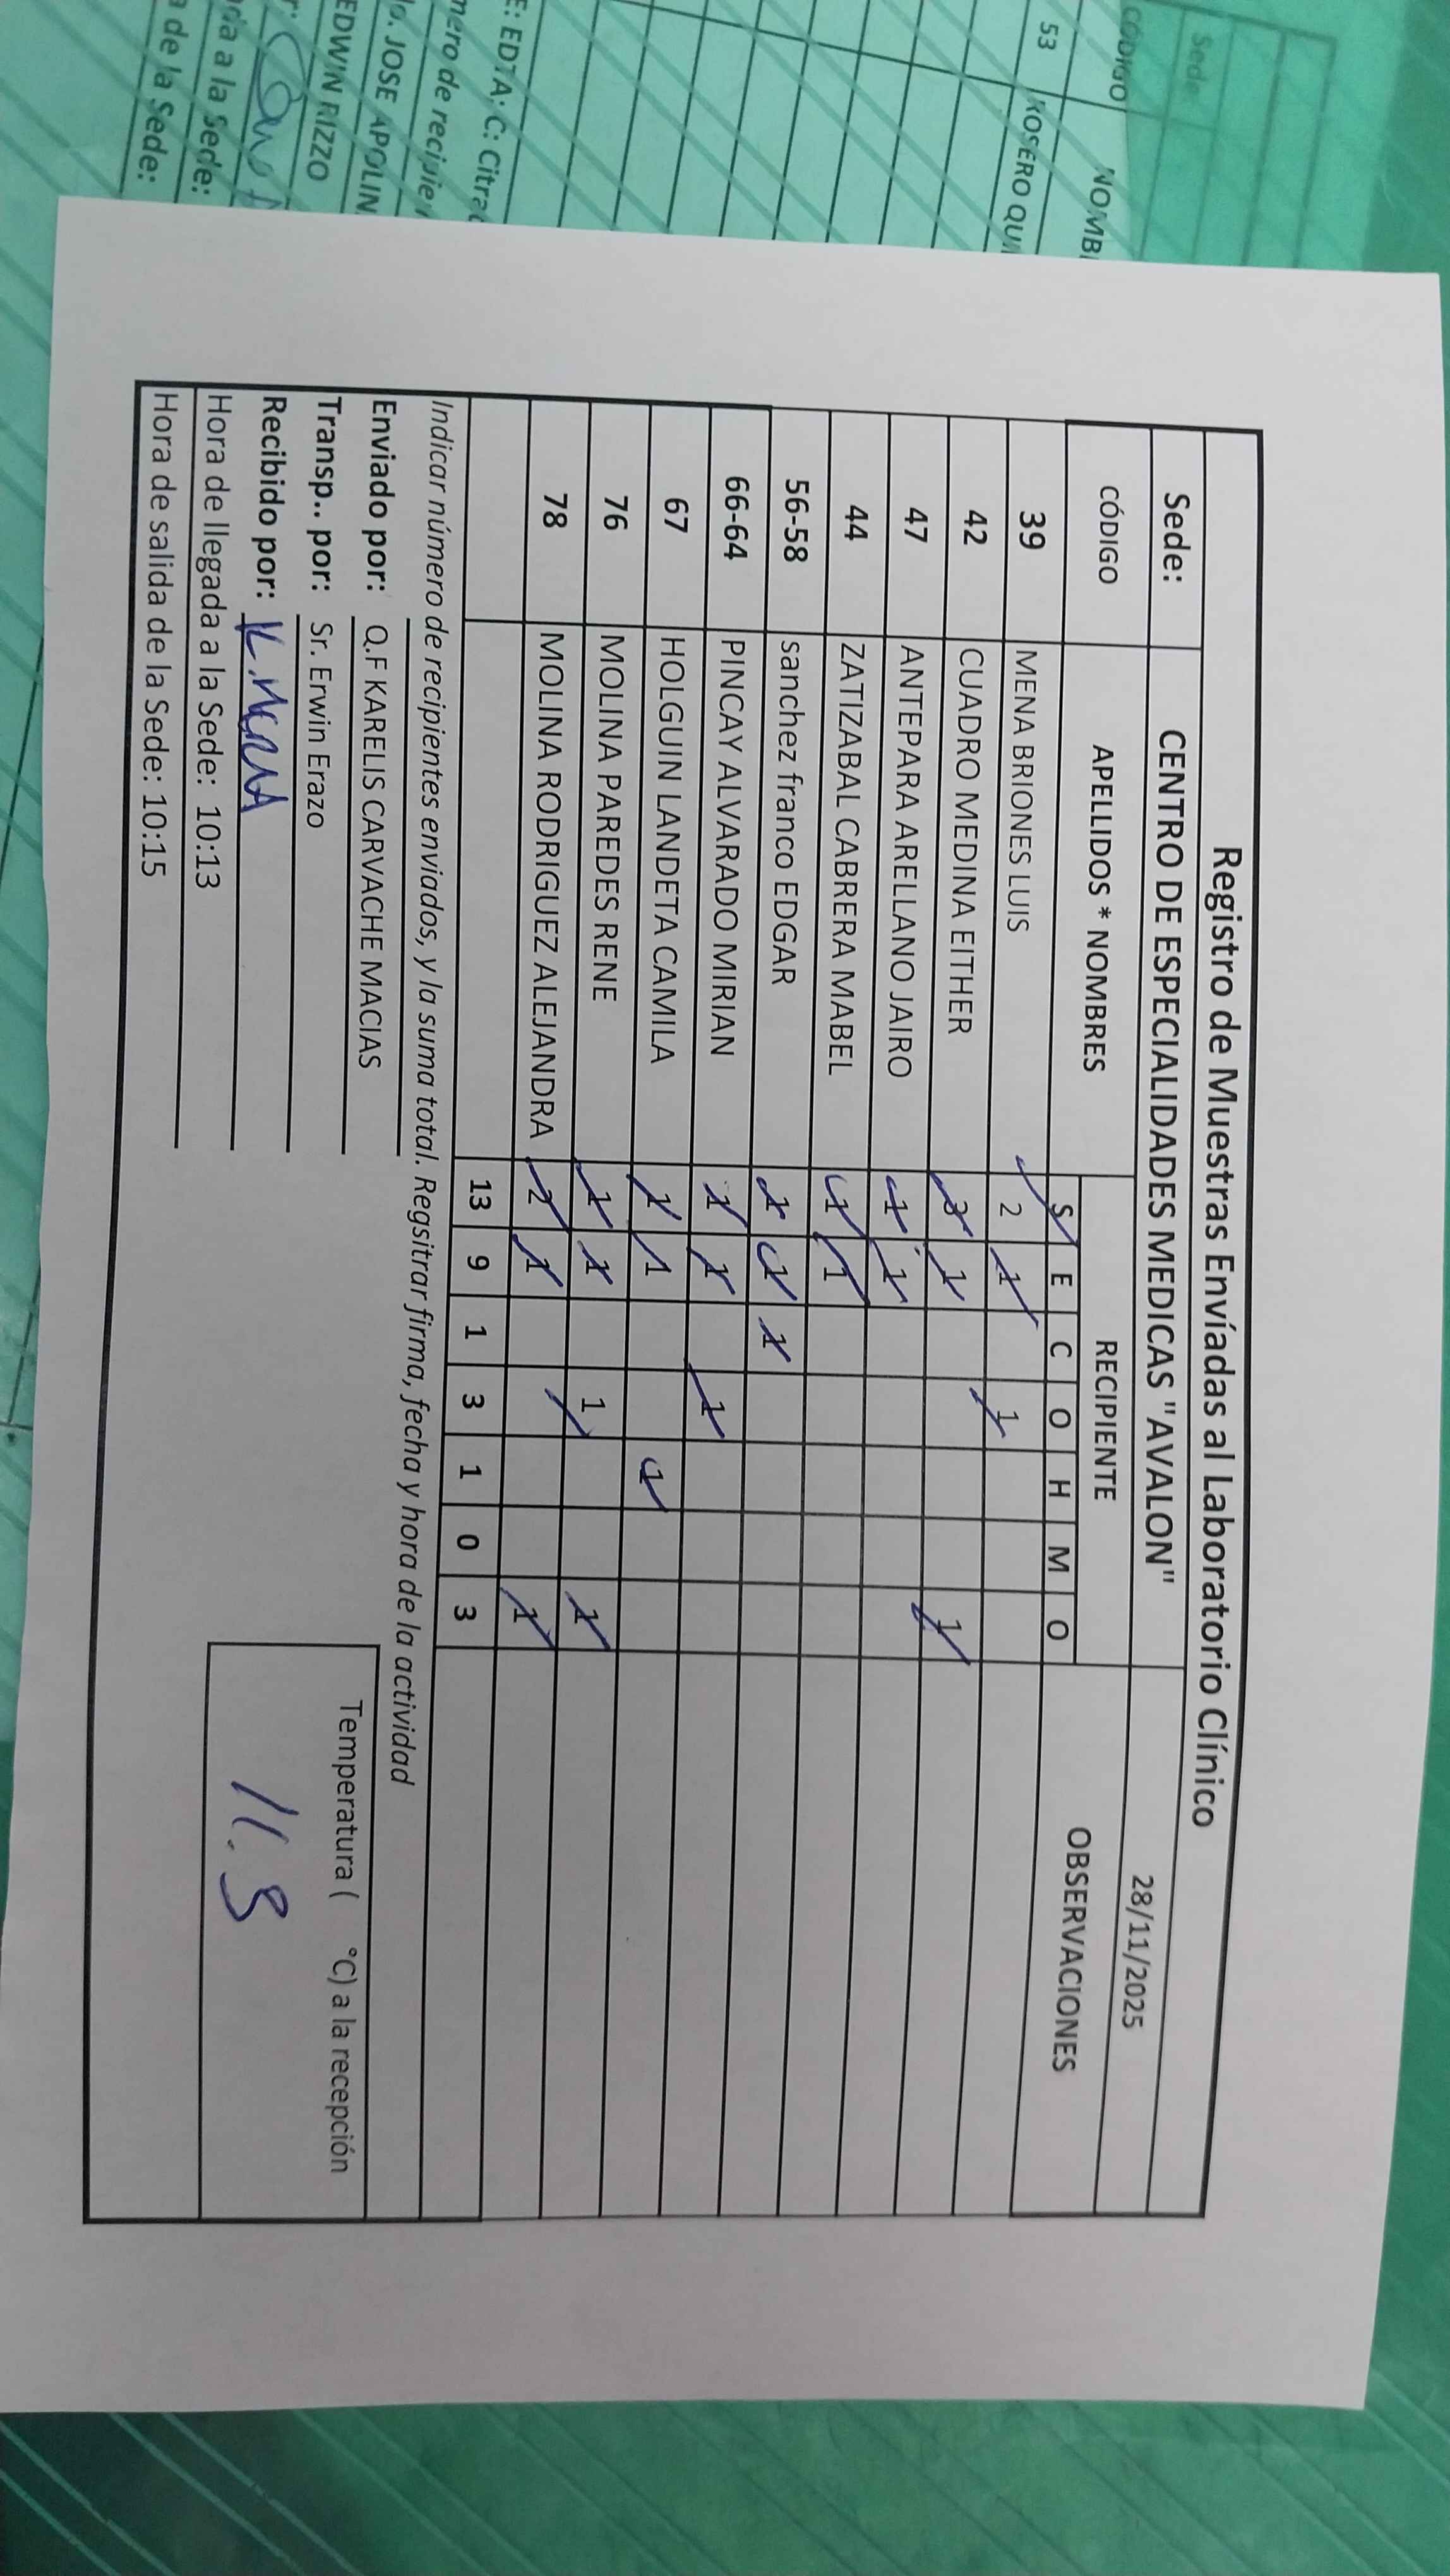 Registro de Muestras Envíadas al Laboratorio Clínico
Sede: CENTRO DE ESPECIALIDADES MEDICAS "AVALON" 28/11/2025
CÓDIGO APELLIDOS * NOMBRES RECIPIENTE OBSERVACIONES
S E C O H M O
39 MENA BRIONES LUIS 2 1 1
42 CUADRO MEDINA EITHER 3 1 1
47 ANTEPARA ARELLANO JAIRO 1 1
44 ZATIZABAL CABRERA MABEL 1 1
56-58 sanchez franco EDGAR 1 1 1
66-64 PINCAY ALVARADO MIRIAN 1 1 1
67 HOLGUIN LANDETA CAMILA 1 1 1
76 MOLINA PAREDES RENE 1 1 1 1
78 MOLINA RODRIGUEZ ALEJANDRA 2 1 1
13 9 1 3 1 0 3
Indicar número de recipientes enviados, y la suma total. Regsitrar firma, fecha y hora de la actividad
Enviado por: Q.F KARELIS CARVACHE MACIAS
Transp.. por: Sr. Erwin Erazo
Recibido por:
Hora de llegada a la Sede: 10:13
Hora de salida de la Sede: 10:15
Temperatura ( °C) a la recepción
11.3
Sede
CÓDIGO NOMB
53 ROSERO QUI
E: EDTA; C: Citra
mero de recipie
o. JOSE APOLIN
EDWIN RIZZO
a a la Sede:
a de la Sede: